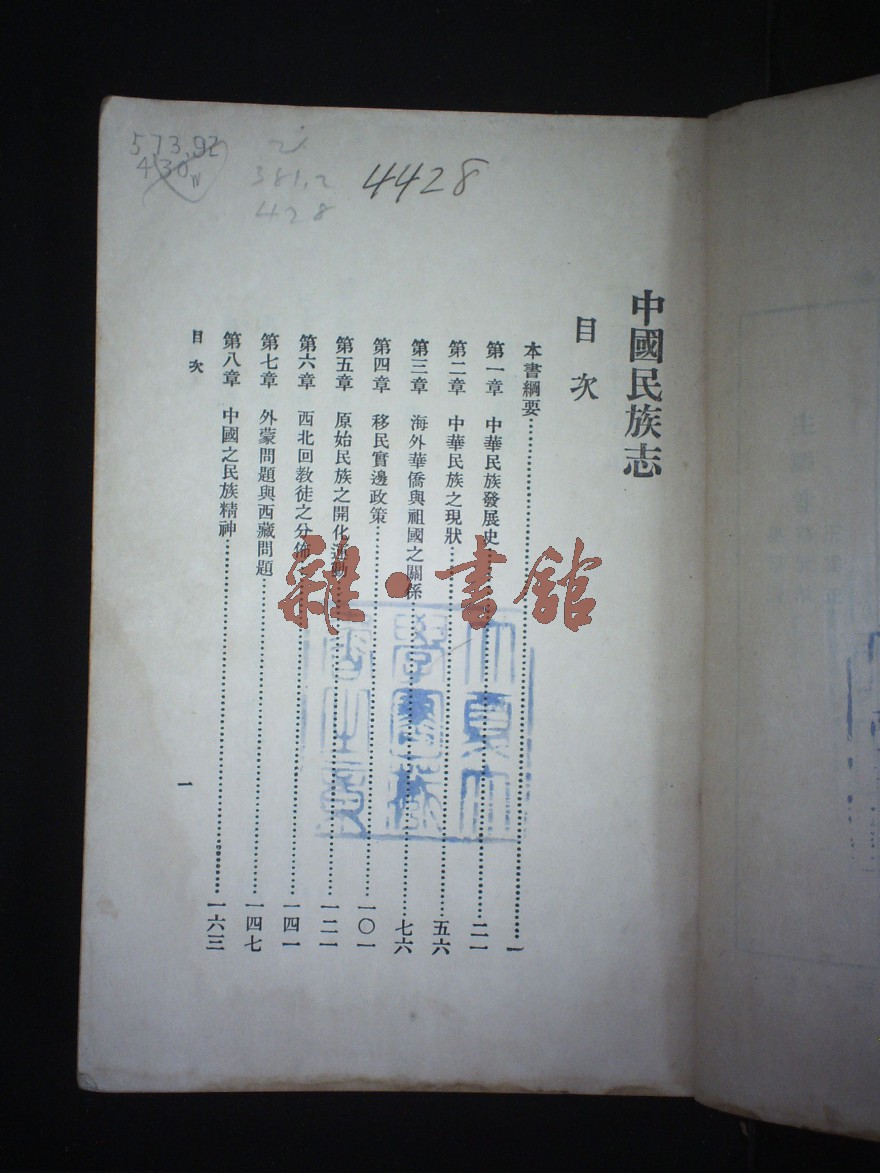 573.92
430
IV
381.2
428
4428
中國民族志
目次
本書綱要……一
第一章 中華民族發展史……二一
第二章 中華民族之現狀……五六
第三章 海外華僑與祖國之關係……七六
第四章 移民實邊政策……一〇一
第五章 原始民族之開化運動……一二一
第六章 西北回教徒之分佈……一四一
第七章 外蒙問題與西藏問題……一四七
第八章 中國之民族精神……一六三
目次
一
雜·書館
大夏大
學圖書館